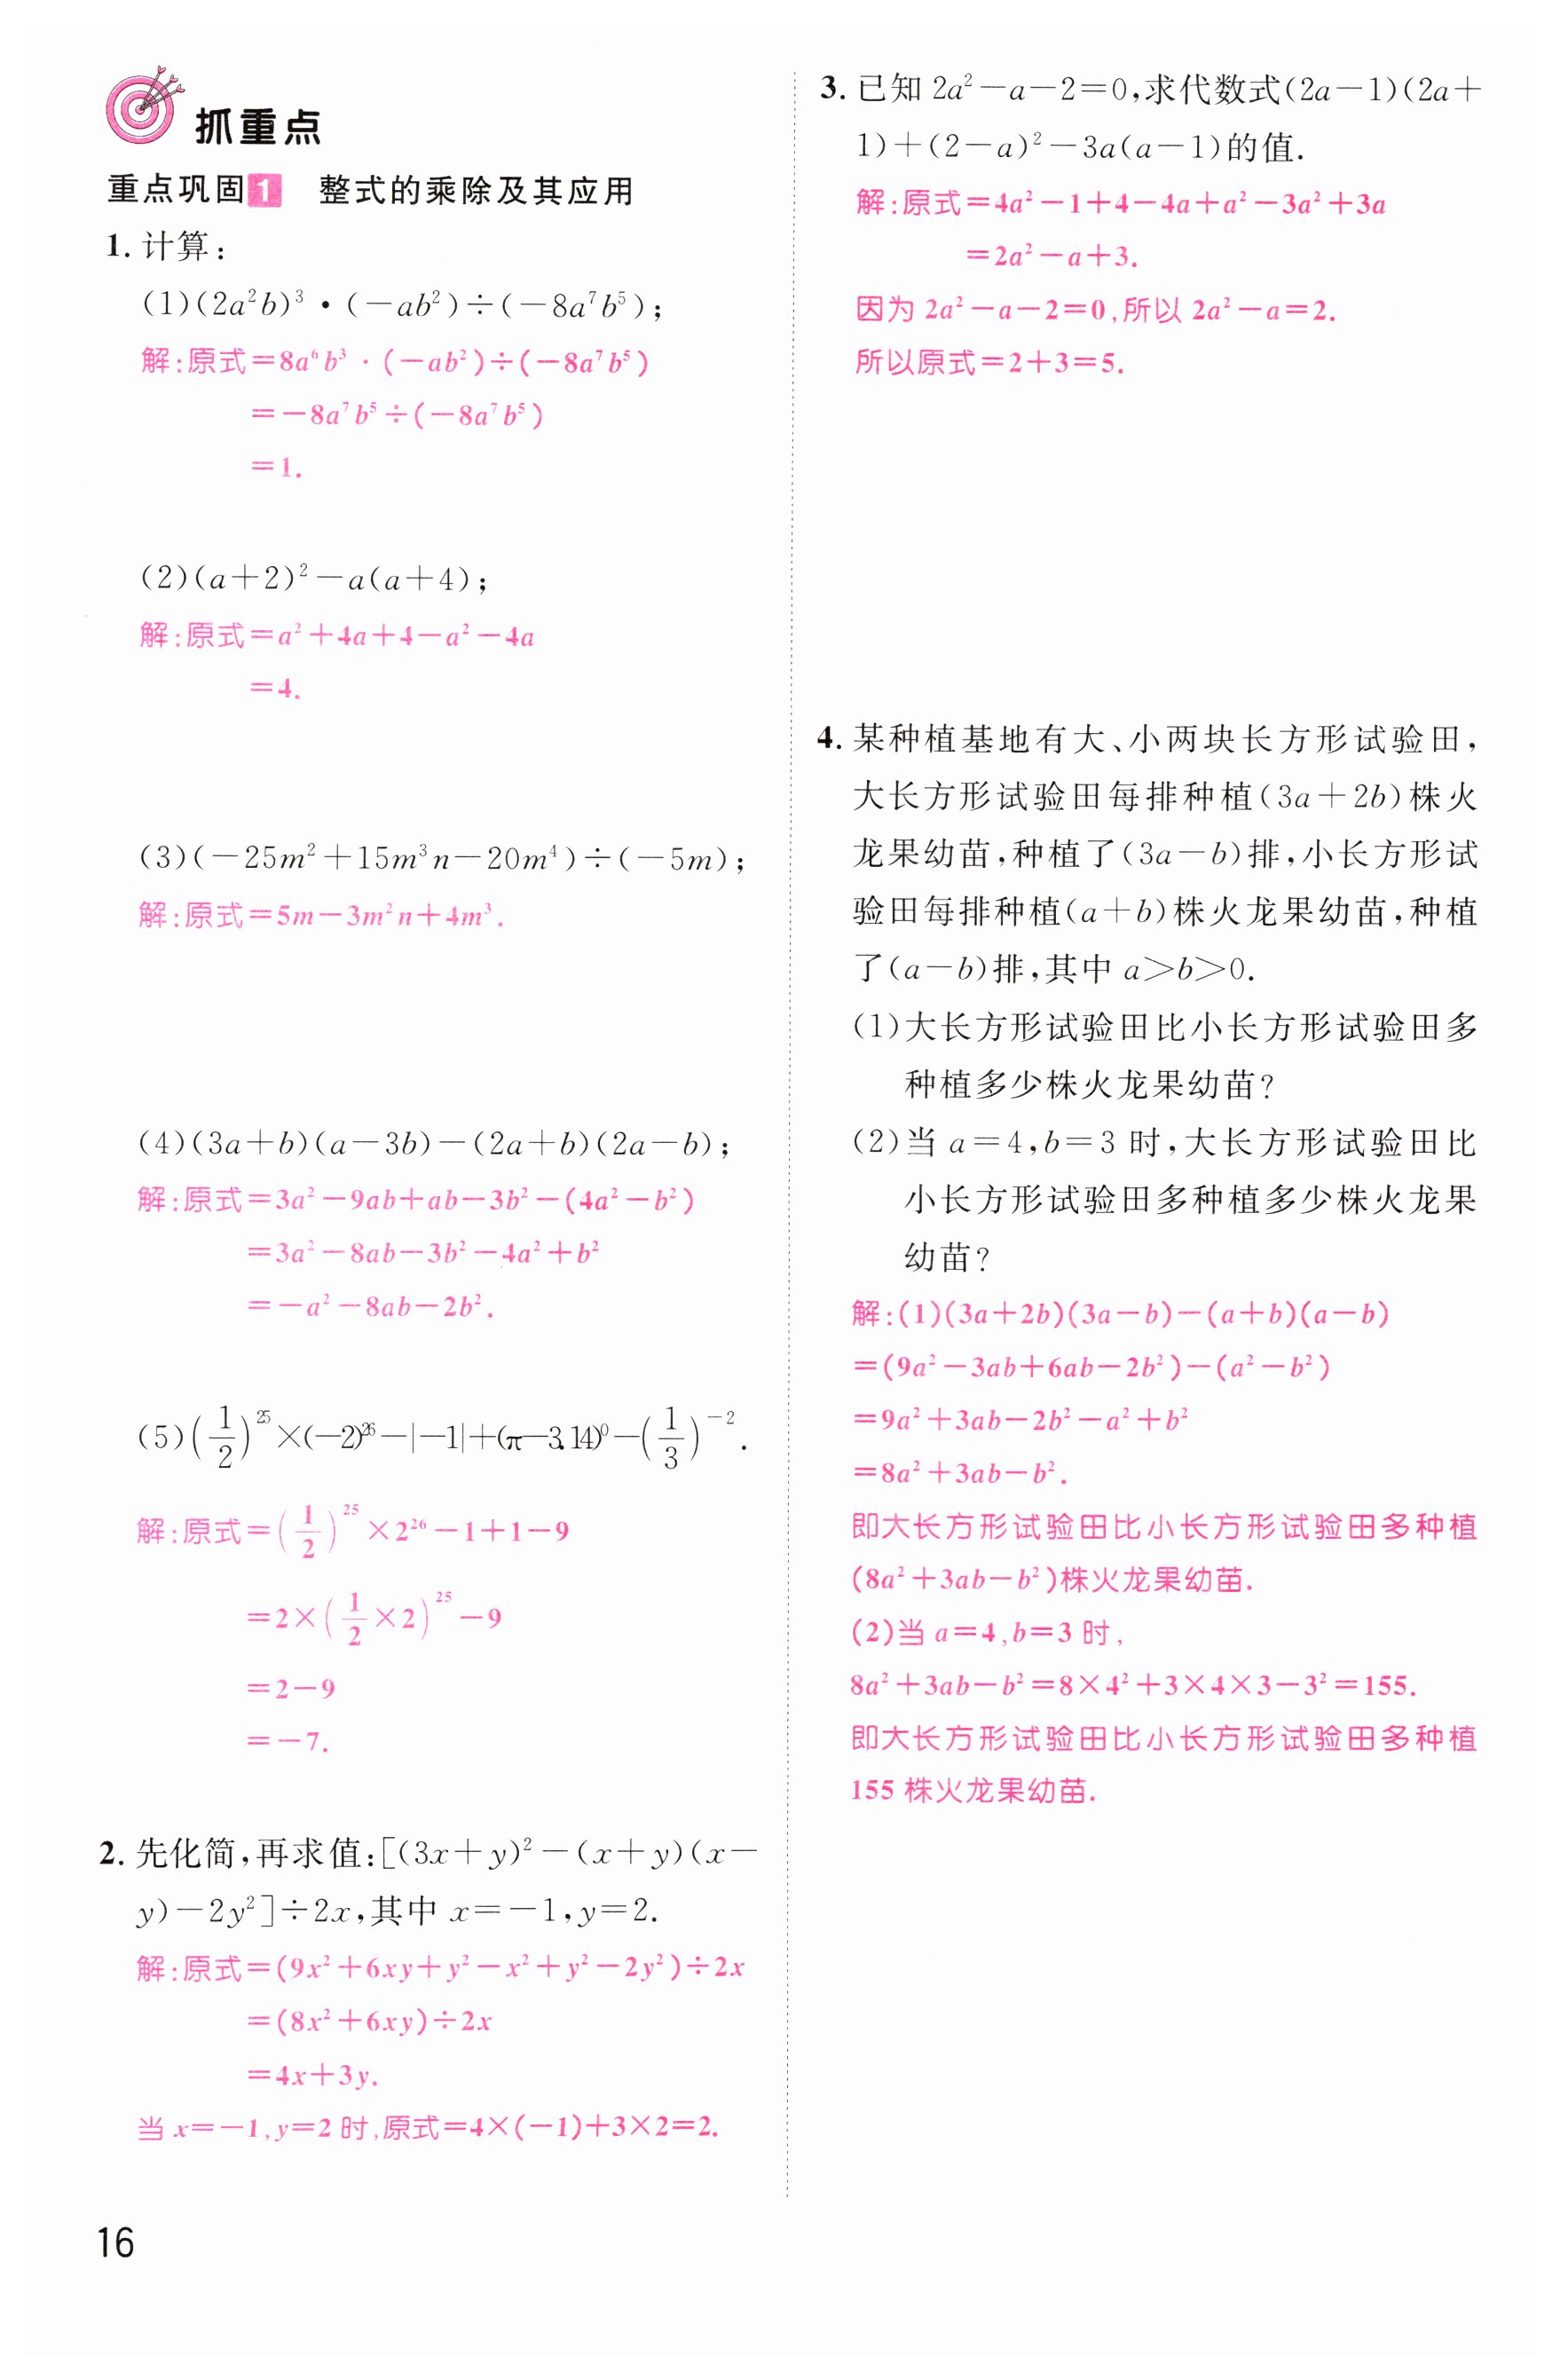 抓重点
重点巩固1 整式的乘除及其应用
1. 计算:
(1)(2a²b)³·(-ab²)÷(-8a⁷b⁵);
解:原式=8a⁶b³·(-ab²)÷(-8a⁷b⁵)
=-8a⁷b⁵÷(-8a⁷b⁵)
=1.
(2)(a+2)²-a(a+4);
解:原式=a²+4a+4-a²-4a
=4.
(3)(-25m²+15m³n-20m⁴)÷(-5m);
解:原式=5m-3m²n+4m³.
(4)(3a+b)(a-3b)-(2a+b)(2a-b);
解:原式=3a²-9ab+ab-3b²-(4a²-b²)
=3a²-8ab-3b²-4a²+b²
=-a²-8ab-2b².
(5)(1/2)²⁵×(-2)²⁶-|-1|+(π-3.14)⁰-(1/3)⁻².
解:原式=(1/2)²⁵×2²⁶-1+1-9
=2×(1/2×2)²⁵-9
=2-9
=-7.
2. 先化简,再求值:[(3x+y)²-(x+y)(x-
y)-2y²]÷2x,其中 x=-1,y=2.
解:原式=(9x²+6xy+y²-x²+y²-2y²)÷2x
=(8x²+6xy)÷2x
=4x+3y.
当 x=-1,y=2 时,原式=4×(-1)+3×2=2.
16
3. 已知 2a²-a-2=0,求代数式(2a-1)(2a+
1)+(2-a)²-3a(a-1)的值.
解:原式=4a²-1+4-4a+a²-3a²+3a
=2a²-a+3.
因为 2a²-a-2=0,所以 2a²-a=2.
所以原式=2+3=5.
4. 某种植基地有大、小两块长方形试验田,
大长方形试验田每排种植(3a+2b)株火
龙果幼苗,种植了(3a-b)排,小长方形试
验田每排种植(a+b)株火龙果幼苗,种植
了(a-b)排,其中 a>b>0.
(1)大长方形试验田比小长方形试验田多
种植多少株火龙果幼苗?
(2)当 a=4,b=3 时,大长方形试验田比
小长方形试验田多种植多少株火龙果
幼苗?
解:(1)(3a+2b)(3a-b)-(a+b)(a-b)
=(9a²-3ab+6ab-2b²)-(a²-b²)
=9a²+3ab-2b²-a²+b²
=8a²+3ab-b².
即大长方形试验田比小长方形试验田多种植
(8a²+3ab-b²)株火龙果幼苗.
(2)当 a=4,b=3 时,
8a²+3ab-b²=8×4²+3×4×3-3²=155.
即大长方形试验田比小长方形试验田多种植
155 株火龙果幼苗.